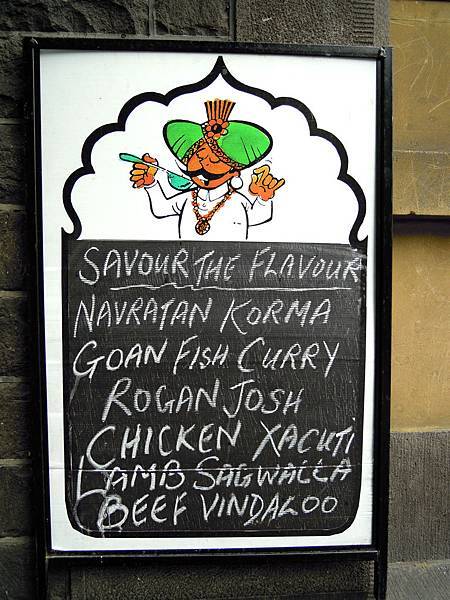 SAVOUR THE FLAVOUR
NAVRATAN KORMA
GOAN FISH CURRY
ROGAN JOSH
CHICKEN XACUTI
LAMB SAGWALLA
BEEF VINDALOO